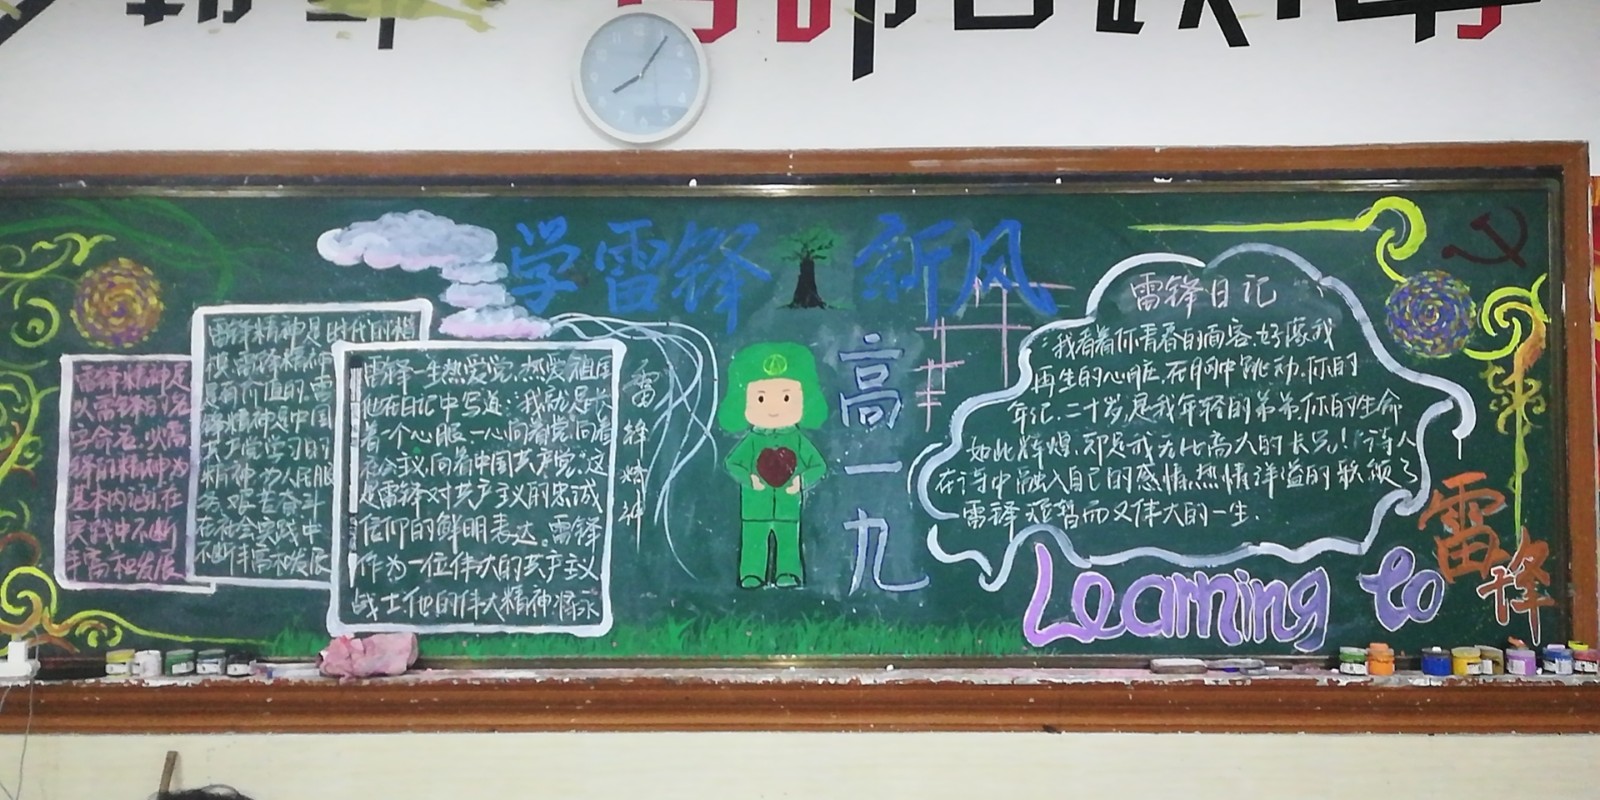 学雷锋 新风
雷锋精神是
以雷锋的名
字命名,以雷
锋的精神为
基本内涵,在
实践中不断
丰富和发展
雷锋精神是时代的楷
模,雷锋精神
具有价值的,雷
锋精神是中国
共产党学习的
精神,为人民服
务,艰苦奋斗
在社会实践中
不断丰富和发展
雷锋一生热爱党、热爱祖国
他在日记中写道:“我就是长
着一个心眼,一心向着党,向着
社会主义,向着中国共产党”这
是雷锋对共产主义的忠诚
信仰的鲜明表达。雷锋
作为一位伟大的共产主义
战士他的伟大精神将永
雷锋精神
高一九
雷锋日记
“我看着你青春的面容,好像我
再生的心脏,在胸中跳动,你的
年纪,二十岁,是我年轻的弟弟,你的生命
如此辉煌,却是我无比高大的长兄!”诗人
在诗中融入自己的感情,热情洋溢的歌颂了
雷锋短暂而又伟大的一生.
Learning to
雷锋